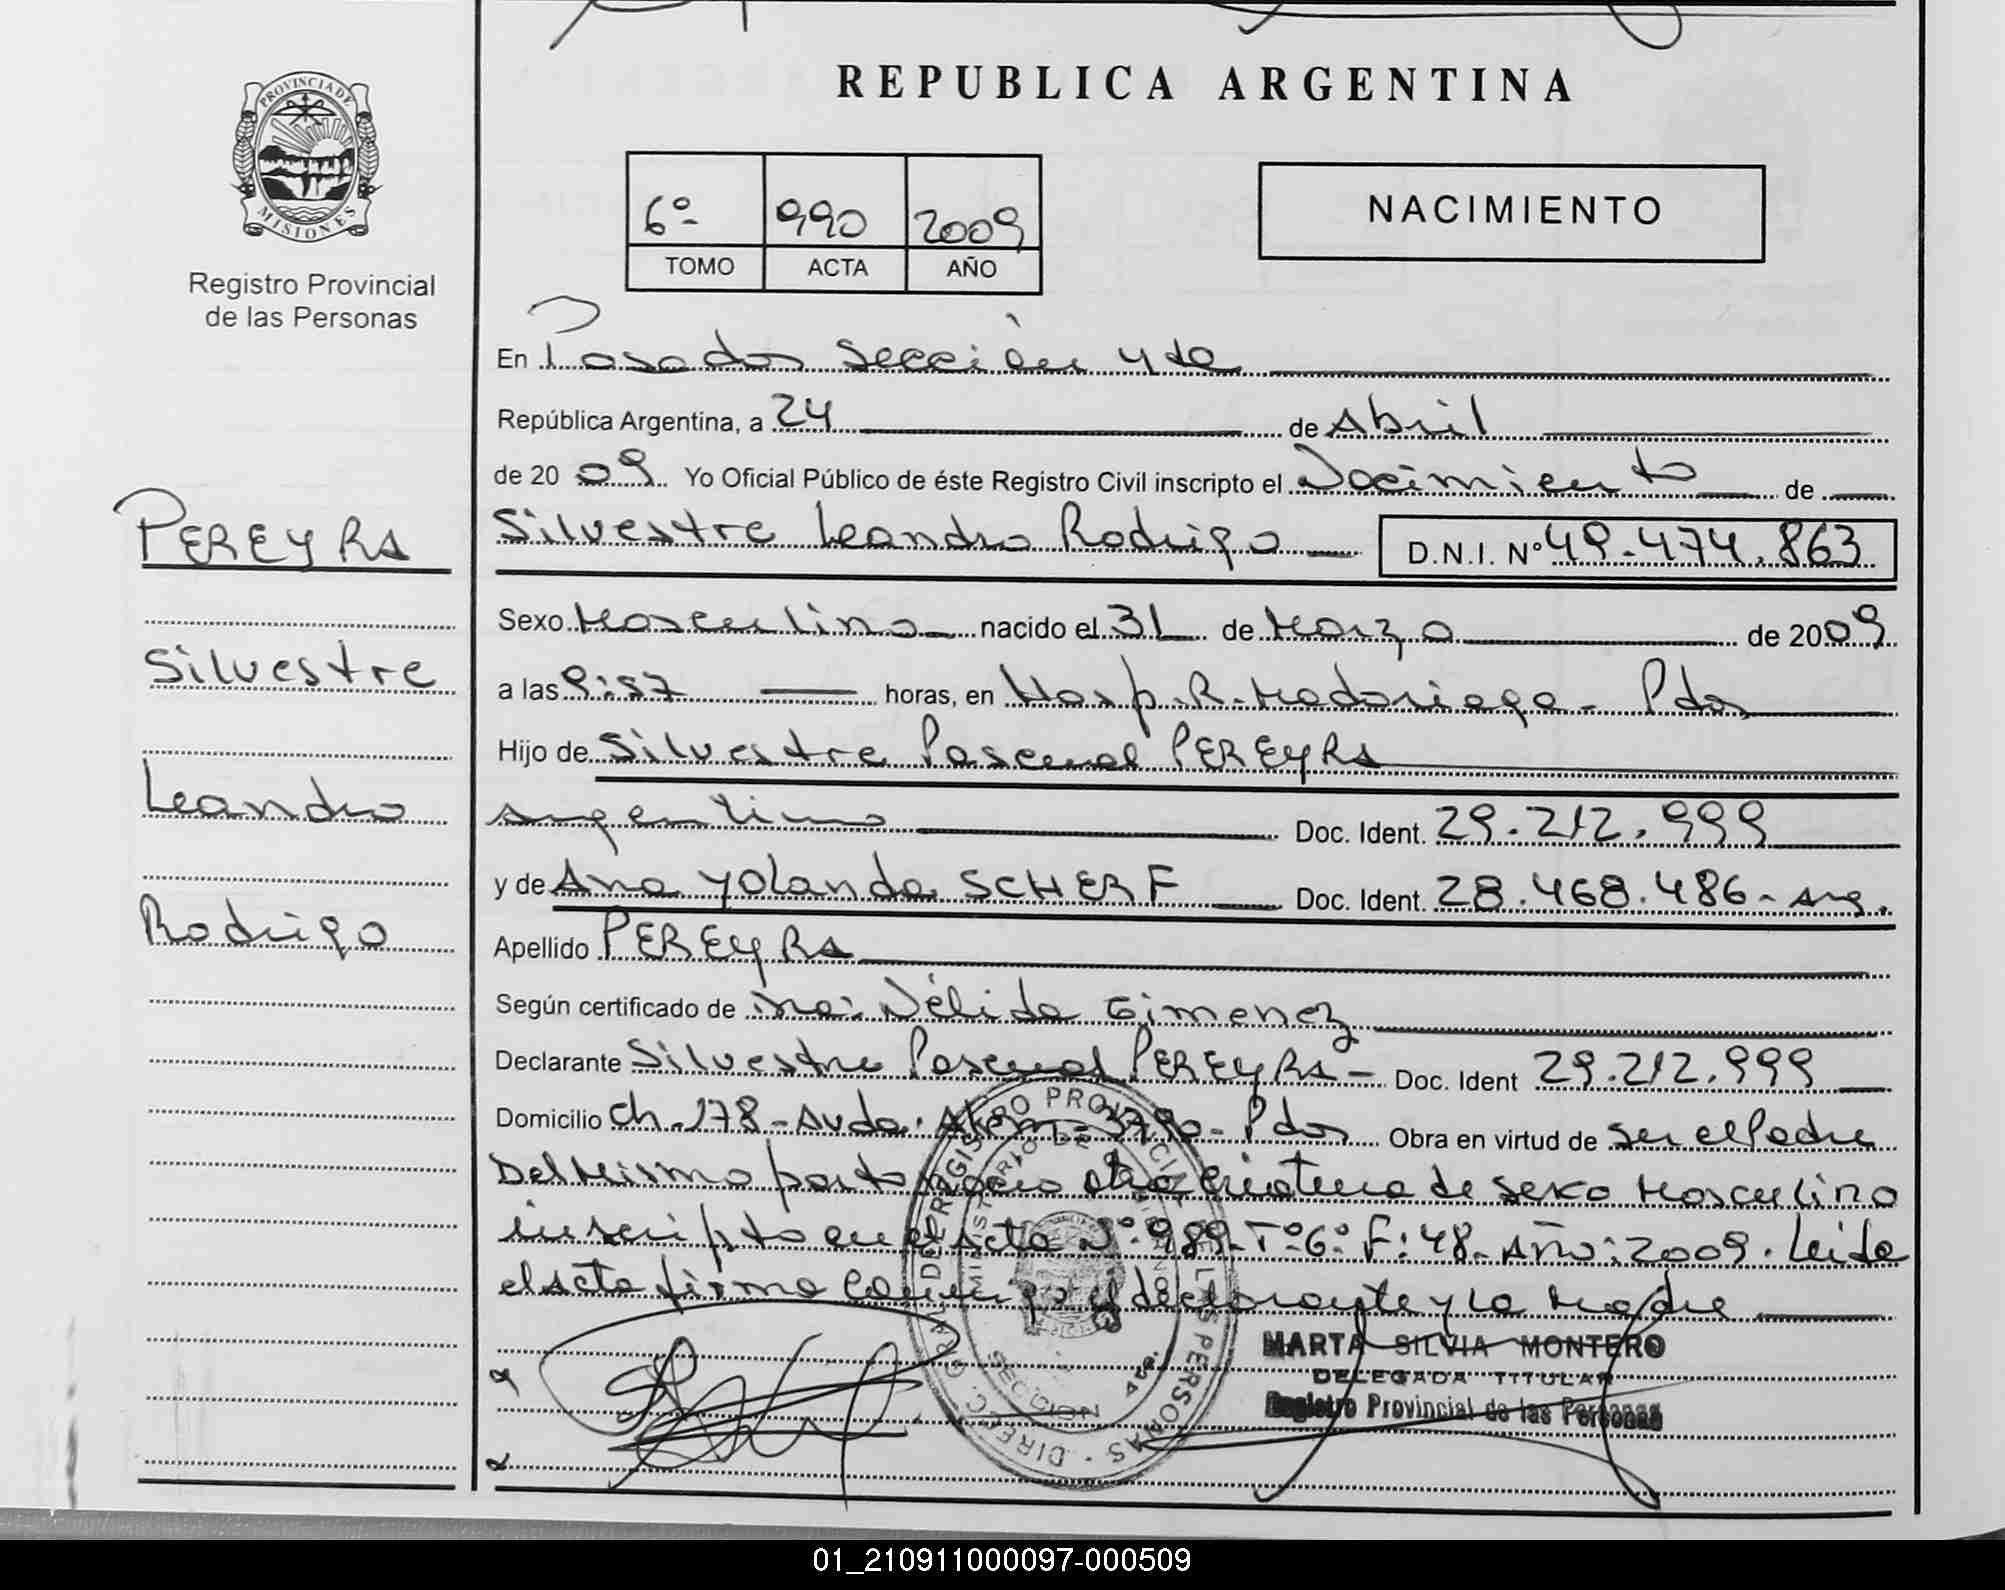 REPUBLICA ARGENTINA
PROVINCIA DE
MISIONES
Registro Provincial
de las Personas
6º 990 2009
TOMO ACTA AÑO
NACIMIENTO
En Posadas Sección 4ta
República Argentina, a 24 de Abril
de 20 09 Yo Oficial Público de éste Registro Civil inscripto el Nacimiento de
Silvestre Leandro Rodrigo D.N.I. Nº 49.474.863
PEREYRA
Silvestre
Leandro
Rodrigo
Sexo Masculino nacido el 31 de Marzo de 2009
a las 9:57 horas, en Hosp. R. Madariaga - Pdas
Hijo de Silvestre Pascual PEREYRA
Argentino Doc. Ident. 29.212.999
y de Ana Yolanda SCHERF Doc. Ident. 28.468.486 - Arg.
Apellido PEREYRA
Según certificado de Nélida Gimenez
Declarante Silvestre Pascual PEREYRA - Doc. Ident 29.212.999
Domicilio Ch. 178 - Avda. Alem - 3790 - Pdas Obra en virtud de Ser el Padre
Del Mismo parto nacio otra criatura de sexo Masculino
inscripto en el acta Nº 989 - Tº 6º F: 48 - Año: 2009. Leida
el acta firma conmigo el declarante y la Madre
MARTA SILVIA MONTERO
DELEGADA TITULAR
Registro Provincial de las Personas
DIREC. GRAL. DEL REGISTRO PROVINCIAL DE LAS PERSONAS
MINISTERIO DE
SECCION 4ta.
01_210911000097-000509